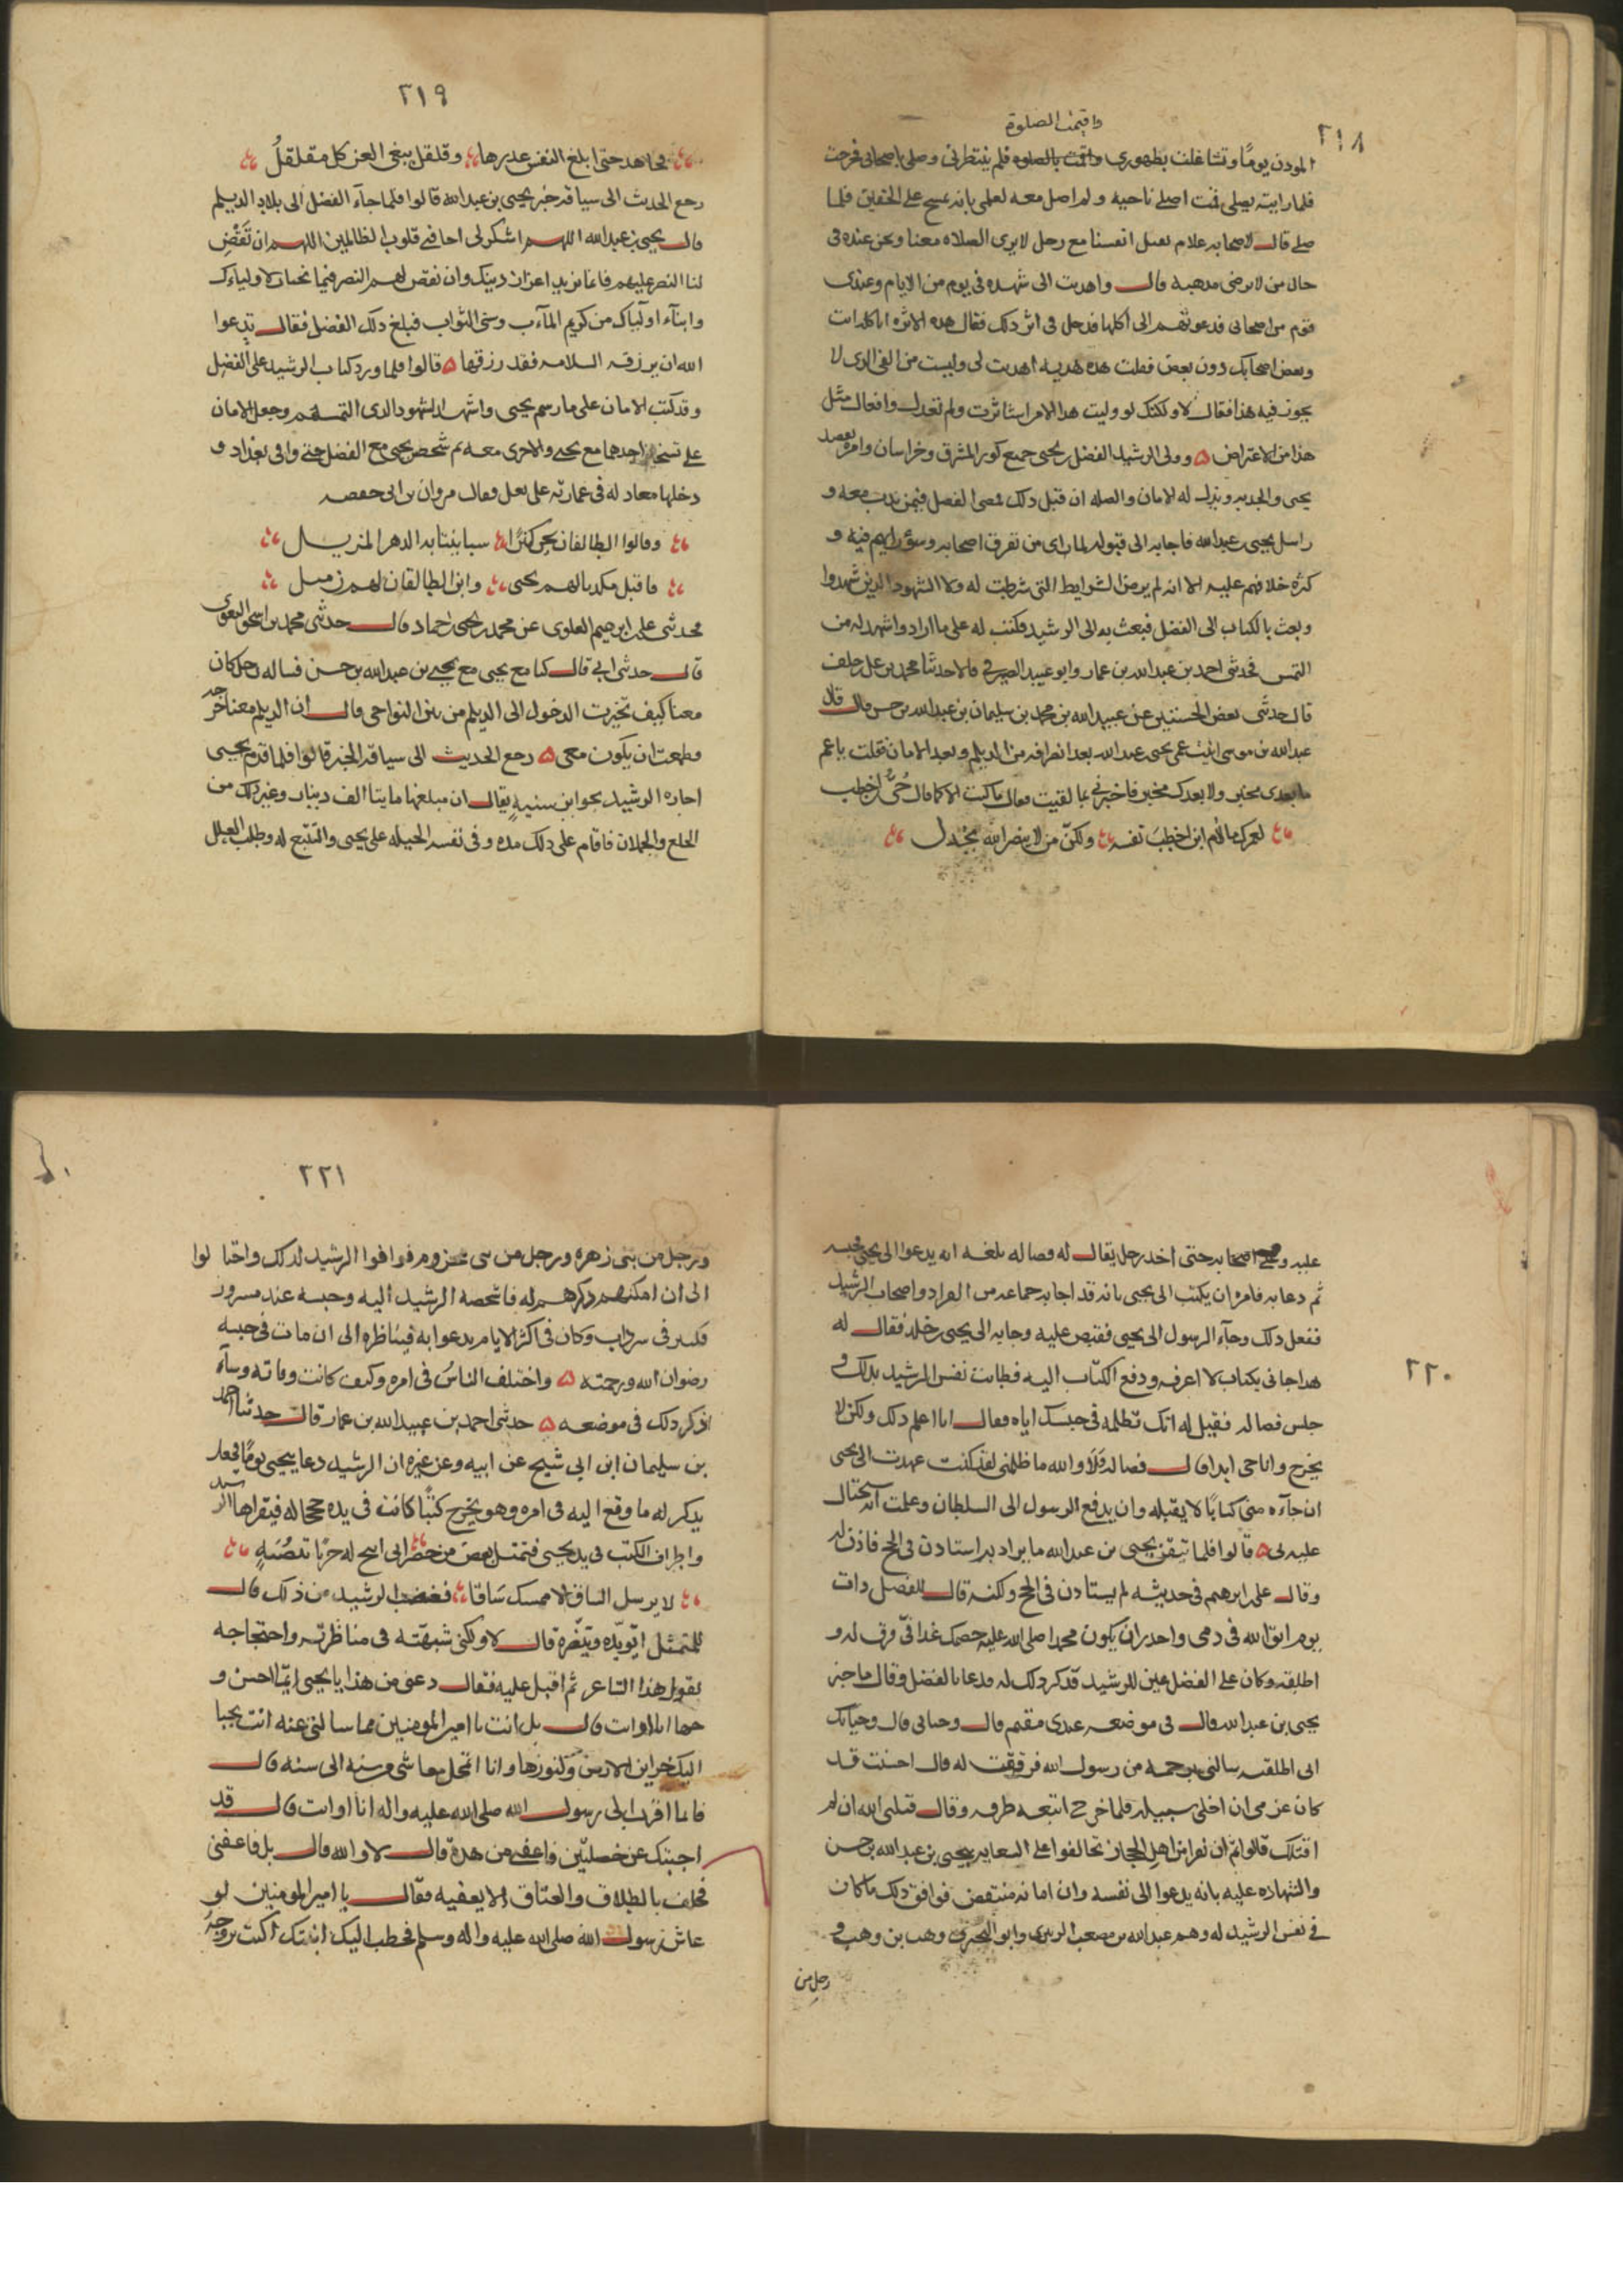 ٢١٨
واقيمت الصلوة
المودن يوما وتشاغلت بطهورى واقمت بالصلوه فلم ينتظرنى وصلى باصحابى فخرجت
فلما رايته يصلى قمت اصلى ناحية ولم اصل معه لعلمى بانه يمسح على الخفين فلما
صلى قال لاصحابه علام نقتل انفسنا مع رجل لايرى الصلاه معنا ونحن عنده فى
حال من لايرضى مذهبه قال واهديت الى شهده فى يوم من الايام وعندى
قوم من اصحابى فدعوتهم الى اكلها فدخل فى اثر ذلك فقال هذه الاثره اتاكله انت
وبعض اصحابك دون بعض فقلت هذه هديه اهديت لى وليست من الفى الذى لا
يجوز فيه هذا فقال لا ولكنك لو وليت هذا الامر لاستاثرت ولم تعدل وافعال مثل
هذا من الاعتراض ۵ وولى الرشيد الفضل بن يحيى جميع كور المشرق وخراسان وامره بقصد
يحيى والجد به وبذل له الامان والصله ان قبل ذلك فمضى الفضل فيمن ندب معه و
راسل يحيى بن عبدالله فاجابه الى قبوله لما راى من تفرق اصحابه وسؤ رايهم فيه و
كثرة خلافهم عليه الا انه لم يرض الشرايط التى شرطت له ولا الشهود الذين شهدوا
وبعث بالكتاب الى الفضل فبعث به الى الرشيد فكتب له على ما اراد واشهد له من
التمس فحدثنى احمد بن عبدالله بن عمار وابو عبيد الصيرفى قالا حدثنا محمد بن على بن خلف
قال حدثنى بعض الحسنيين عن عبيدالله بن محمد بن سليمان بن عبدالله بن حسن قال قال
عبدالله بن موسى اتيت عمى يحيى بن عبدالله بعد انصرافه من الديلم وبعد الامان فقلت ياعم
مابعدى مخبر ولا بعدك مخبر فاخبرنى بما لقيت فقال ماكنت الا كما قال حُيَىّ بن اخطب
لعمرك مالام ابن اخطب نفسه ولكنّ من لاينصر الله يخذل
٢١٩
يجاهد حتى ابلغ النفس عذرها وقلقل يبغى العز كل مقلقلُ
رجع الحديث الى سياقه خبر يحيى بن عبدالله قالوا فلما جآء الفضل الى بلاد الديلم
قال يحيى بن عبدالله اللهم اشكر لى اخافتى قلوب الظالمين اللهم ان تَقْضِ
لنا النصر عليهم فانما نريد اعزاز دينك وان تقض لهم النصر فبما تختار لاوليآءك
وابنآء اوليآك من كريم المآءب وسنى الثواب فبلغ ذلك الفضل فقال يدعوا
الله ان يرزقه السلامه فقد رزقها ۵ قالوا فلما ورد كتاب الرشيد على الفضل
وقد كتب الامان على ما رسم يحيى واشهد الشهود الذى التمسهم وجعل الامان
على نسختين احدهما مع يحيى والاخرى معه ثم شخص يحيى مع الفضل حتى وافى بغداد و
دخلها معادله فى عماريه على بغل وقال مروان بن ابى حفصه
وقالوا الطالقان يجن كنزا سياتينا به الدهر المزيل
فاقبل مكدبا لهم يحيى وابن الطالقان لهم زميل
فحدثنى على بن ابرهيم العلوى عن محمد بن يحيى بن حماد قال حدثنى محمد بن اسحق البغوى
قال حدثنى ابى قال كنا مع يحيى مع يحيى بن عبدالله بن حسن فساله رجل كان
معنا كيف تخيرت الدخول الى الديلم من بين النواحى قال ان للديلم معنا خرجه
فطمعت ان يكون معى ۵ رجع الحديث الى سياقه الخبر قالوا فلما قدم يحيى
اجازه الرشيد بجوايز سنيهٍ يقال ان مبلغها مايتا الف دينار وغير ذلك من
الخلع والحملان فاقام على ذلك مده وفى نفسه الحيله على يحيى والتتبع له وطلب العلل
٢٢٠
عليه وعلى اصحابه حتى اخذ رجل يقال له فضاله بلغه انه يدعوا الى يحيى فحبسه
ثم دعا به فامره ان يكتب الى يحيى بانه قد اجابه جماعه من القواد واصحاب الرشيد
ففعل ذلك وجآء الرسول الى يحيى فقبض عليه وجا به الى يحيى بن خلد فقال له
هذا جانى بكتاب لا اعرفه ودفع الكتاب اليه فطابت نفس الرشيد بذلك و
حبس فضاله فقيل له انك تظلمه فى حبسك اياه فقال انا اعلم ذلك ولكن لا
يخرج وانا حى ابدا قال فضاله فَلَا والله ما ظلمنى لقد كنت عهدت الى يحيى
ان جآءه منى كتابًا لا يقبله وان يدفع الرسول الى السلطان وعلمت انه سيحتال
عليه لى ۵ قالوا فلما تيقن يحيى بن عبدالله ما يراد به استاذن فى الحج فاذن له
وقال على بن ابرهيم فى حديثه لم يستاذن فى الحج ولكنه قال للفضل ذات
يوم اتق الله فى دمى واحذر ان يكون محمدا صلى الله عليه خصمك غدا فىّ فرق له و
اطلقه وكان على الفضل عين للرشيد قد كر ذلك له فدعا بالفضل وقال ما خبر
يحيى بن عبدالله قال فى موضعه عندى مقيم قال وحياتى قال وحياتك
انى اطلقته سالنى برحمه من رسول الله فرققت له قال احسنت قد
كان عزمى ان اخلى سبيله فلما خرج اتبعه طرفه وقال قتلنى الله ان لم
اقتلك قالوا ثم ان نفرا من اهل الحجاز تحالفوا على السعايه بيحيى بن عبدالله بن حسن
والشهاده عليه بانه يدعوا الى نفسه وان امانه منتقض فوافق ذلك ما كان
فى نفس الرشيد له وهم عبدالله بن مصعب الزبيرى وابو البخترى وهب بن وهب و
رجل من
٢٢١
ورجل من بنى زهره ورجل من بنى مخزوم فوافوا الرشيد لذلك واحتالوا
الى ان امكنهم ذكرهم له فاشخصه الرشيد اليه وحبسه عند مسرور
فكبير فى سرداب وكان فى اكثر الايام يدعوا به فيناظره الى ان مات فى حبسه
رضوان الله ورحمته ۵ واختلف الناسُ فى امره وكيف كانت وفاته وسآء
اذكر ذلك فى موضعه ۵ حدثنى احمد بن عبيدالله بن عمار قال حدثنا احمد
بن سليمان ابن ابى شيخ عن ابيه وعن غيره ان الرشيد دعا بيحيى يومًا فجعل
يذكر له ما وقع اليه فى امره وهو يخرج كتبًا كانت فى يده حججا له فيقراها الرشيد
واطراف الكتب فى يد يحيى فتمثل بعض من حضر انى اتيح له حربا تنضُبَهٍ
لا يرسل الساق الا ممسك سَاقَا فغضب الرشيد من ذلك قال
للمتمثل اتويده وتنصره قال لا ولكنى شبهته فى مناظرته واحتجاجه
بقول هذا الشاعر ثم اقبل عليه فقال دعنى من هذا يا يحيى ايّنا احسن و
جها انا او انت قال بل انت يا امير المومنين مما سالتنى عنه انت يجبا
اليك خراين الارض وكنوزها وانا اتمحل معاشى من سنه الى سنه قال
فاينا اقرب الى رسول الله صلى الله عليه واله انا او انت قال قد
اجبتك عن خصلتين فاعفنى من هذه قال لا والله قال بل فاعفنى
فحلف بالطلاق والعتاق الا يعفيه فقال يا امير المومنين لو
عاش رسول الله صلى الله عليه واله وسلم فخطب اليك ابنتك اكنت تزوجه